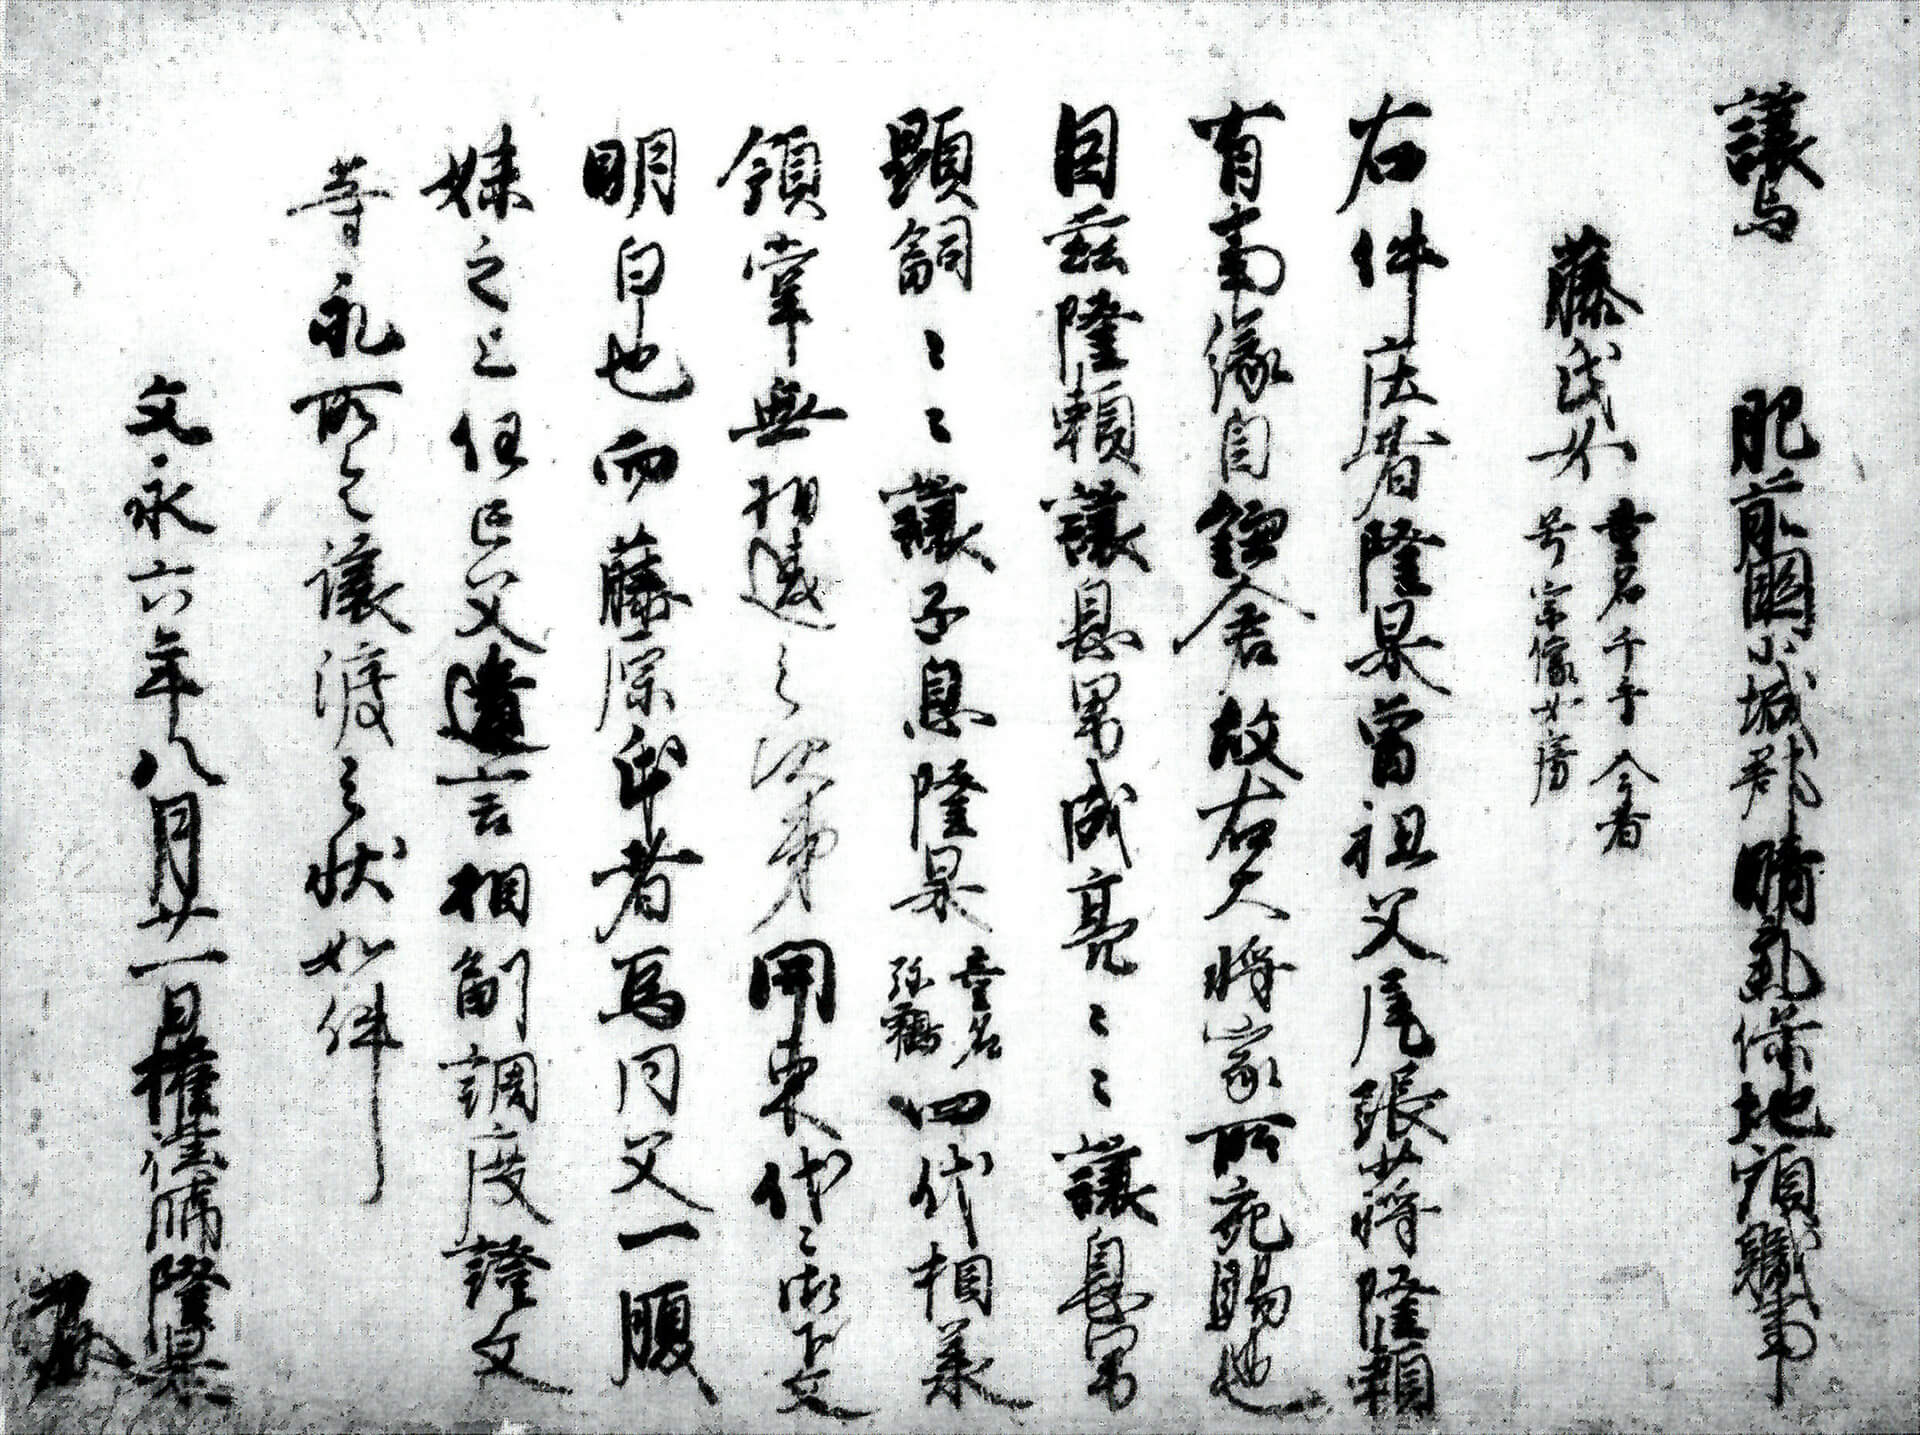 譲与　肥前國小城郡晴氣保地頭職事
藤氏女 童名千手 今者
号宗像女房
右件庄者隆杲曽祖父尾張少将隆頼
有由緣自鎌倉故右大将家所宛賜也
因茲隆頼譲息男成亮〻〻譲息男
顕嗣〻〻譲子息隆杲 童名
弥鶴 四代相承
領掌無相違之次第関東代〻御下文
明白也而藤原氏者為同父一腹
妹之上任亡父遺言相副調度證文
等永所之譲渡之状如件
文永六年八月廿一日権律師隆杲